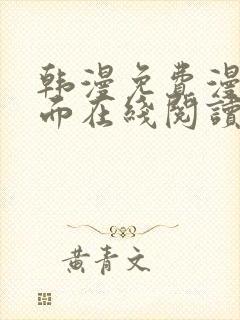 韩漫免费漫
而在线阅读
黄青文